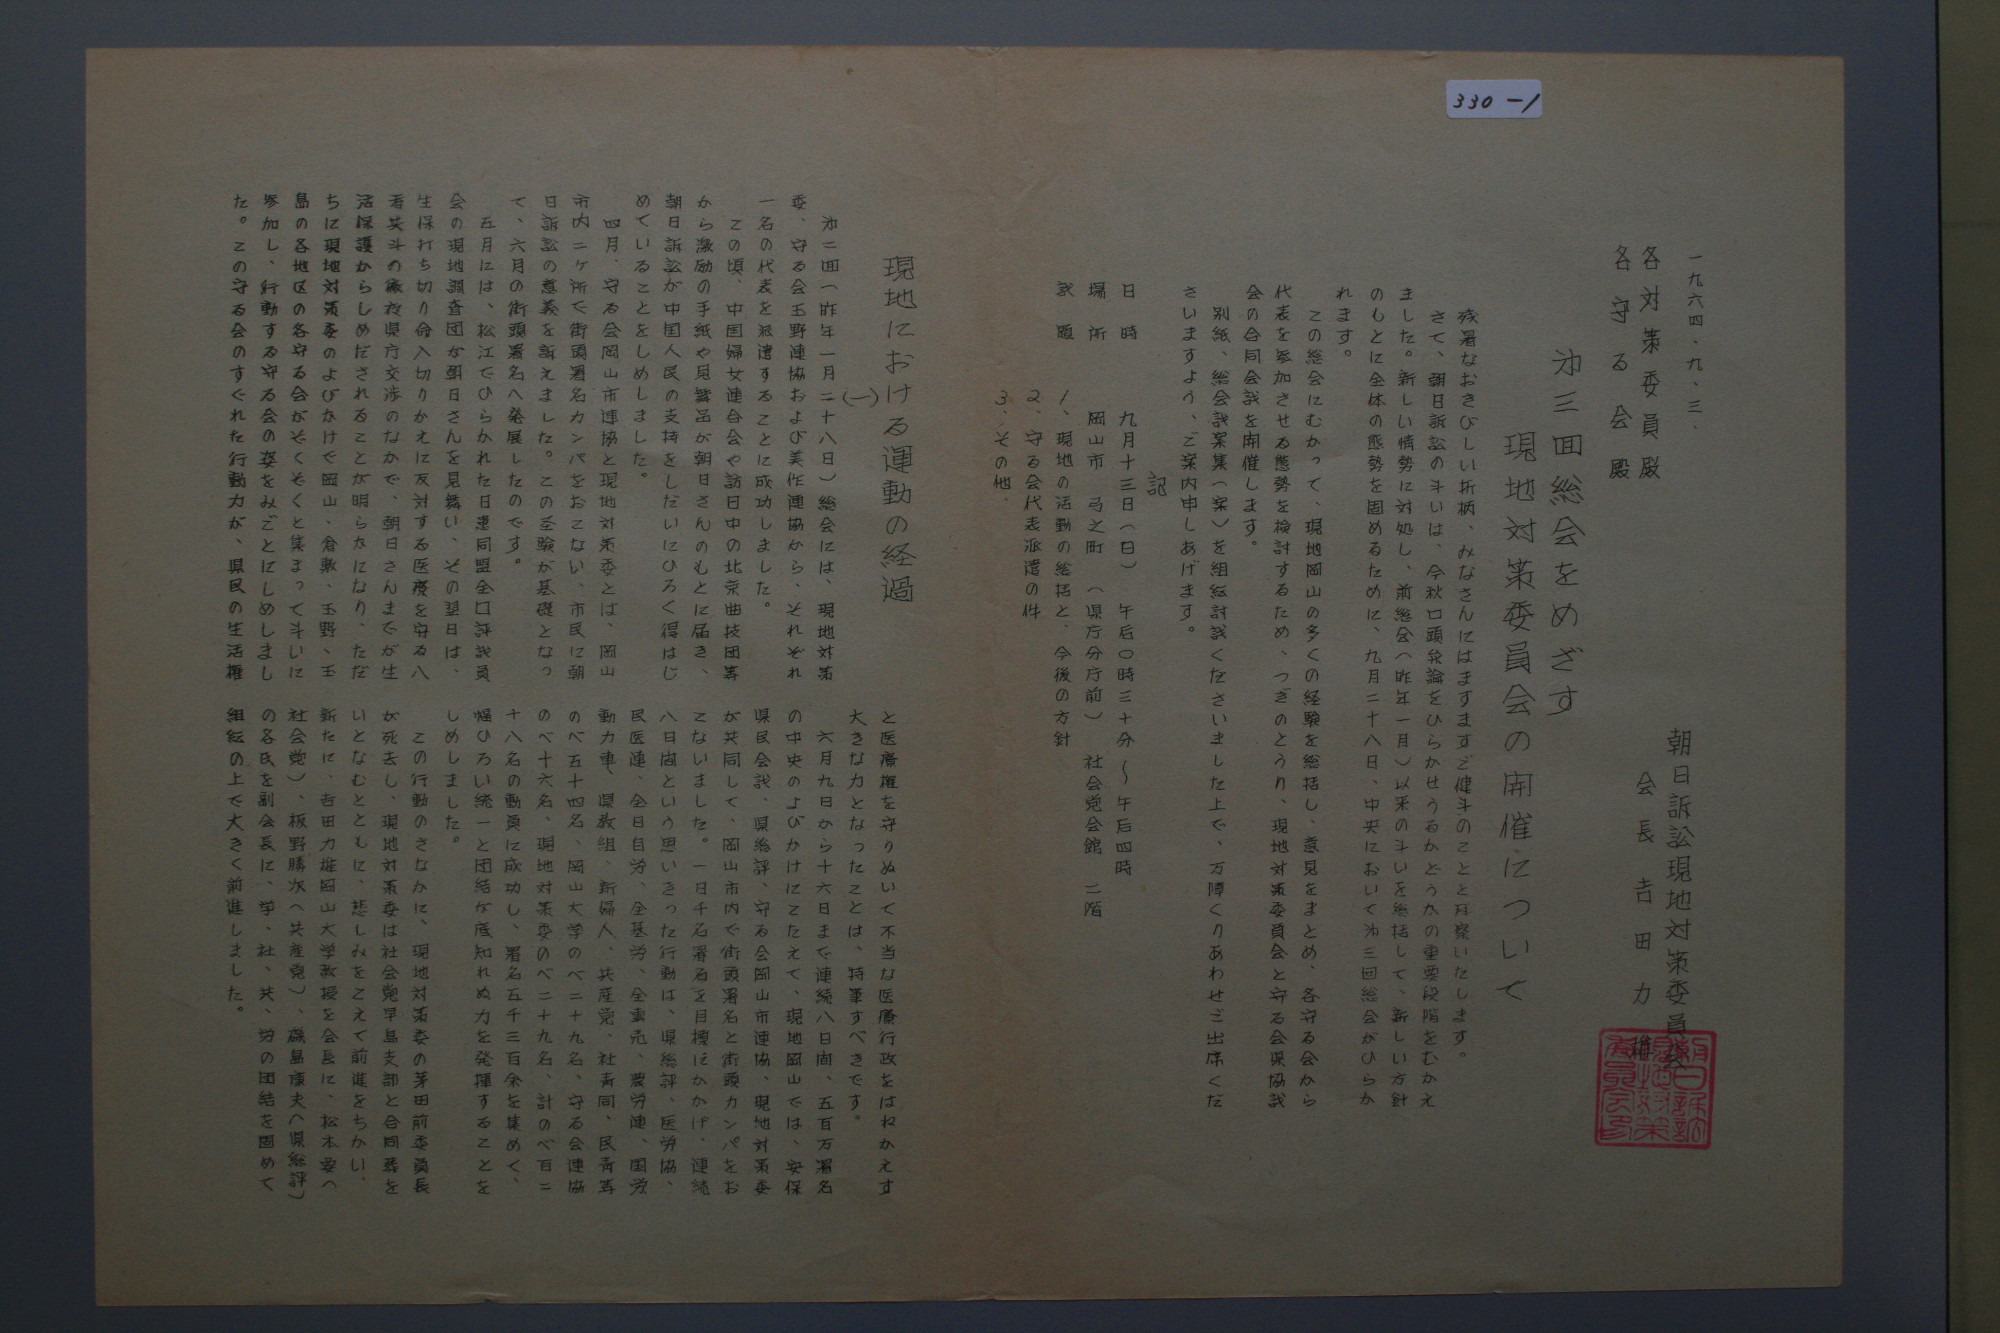 330-1
一九六四、九、三、
各対策委員殿
各守る会殿
朝日訴訟現地対策委員会
会長 吉田力雄
朝日訴訟現地対策委員会印
才三回総会をめざす
現地対策委員会の開催について
残暑なおきびしい折柄、みなさんにはますますご健斗のことと拝察いたします。
さて、朝日訴訟の斗いは、今秋口頭弁論をひらかせうるかどうかの重要段階をむかえ
ました。新しい情勢に対処し、前総会(昨年一月)以来の斗いを総括して、新しい方針
のもとに全体の態勢を固めるために、九月二十八日、中央において才三回総会がひらか
れます。
この総会にむかって、現地岡山の多くの経験を総括し、意見をまとめ、各守る会から
代表を参加させる態勢を検討するため、つぎのとうり、現地対策委員会と守る会県協議
会の合同会議を開催します。
別紙、総会議案集(案)を組織討議くださいました上で、万障くりあわせご出席くだ
さいますよう、ご案内申しあげます。
記
日時 九月十三日(日) 午后〇時三十分~午后四時
場所 岡山市 弓之町 (県庁分庁前) 社会党会館 二階
議題 1、現地の活動の総括と、今後の方針
2、守る会代表派遣の件
3、その他、
現地における運動の経過
(一)
才二回(昨年一月二十八日)総会には、現地対策
委、守る会玉野連協および美作連協から、それぞれ
一名の代表を派遣することに成功しました。
この頃、中国婦女連合会や訪日中の北京曲技団等
から激励の手紙や見舞品が朝日さんのもとに届き、
朝日訴訟が中国人民の支持をしだいにひろく得はじ
めていることをしめしました。
四月、守る会岡山市連協と現地対策委とは、岡山
市内二ヶ所で街頭署名カンパをおこない、市民に朝
日訴訟の意義を訴えました。この経験が基礎となっ
て、六月の街頭署名へ発展したのです。
五月には、松江でひらかれた日患同盟全口評議員
会の現地調査団が朝日さんを見舞い、その翌日は、
生保打ち切り命入切りかえに反対する医療を守る八
者共斗の徹夜県庁交渉のなかで、朝日さんまでが生
活保護からしめだされることが明らかになり、ただ
ちに現地対策委のよびかけで岡山、倉敷、玉野、玉
島の各地区の各守る会がぞくぞくと集まって斗いに
参加し、行動する守る会の姿をみごとにしめしまし
た。この守る会のすぐれた行動力が、県民の生活権
と医療権を守りぬいて不当な医療行政をはねかえす
大きな力となったことは、特筆すべきです。
六月九日から十六日まで連続八日間、五百万署名
の中央のよびかけにこたえて、現地岡山では、安保
県民会議、県総評、守る会岡山市連協、現地対策委
が共同して、岡山市内で街頭署名と街頭カンパをお
こないました。一日千名署名を目標にかかげ、連続
八日間という思いきった行動は、県総評、医労協、
民医連、全日自労、全基労、全専売、農労連、国労
動力車、県教組、新婦人、共産党、社青同、民青等
のべ五十四名、岡山大学のべ二十九名、守る会連協
のべ十六名、現地対策委のべ二十九名、計のべ百二
十八名の動員に成功し、署名五千三百余を集めて、
幅ひろい統一と団結が底知れぬ力を発揮することを
しめしました。
この行動のさなかに、現地対策委の茅田前委員長
が死去し、現地対策委は社会党早島支部と合同葬を
いとなむとともに、悲しみをこえて前進をちかい、
新たに、吉田力雄岡山大学教授を会長に、松本要(
社会党)、板野勝次(共産党)、磯島康夫(県総評)
の各氏を副会長に、学、社、共、労の団結を固めて
組織の上で大きく前進しました。